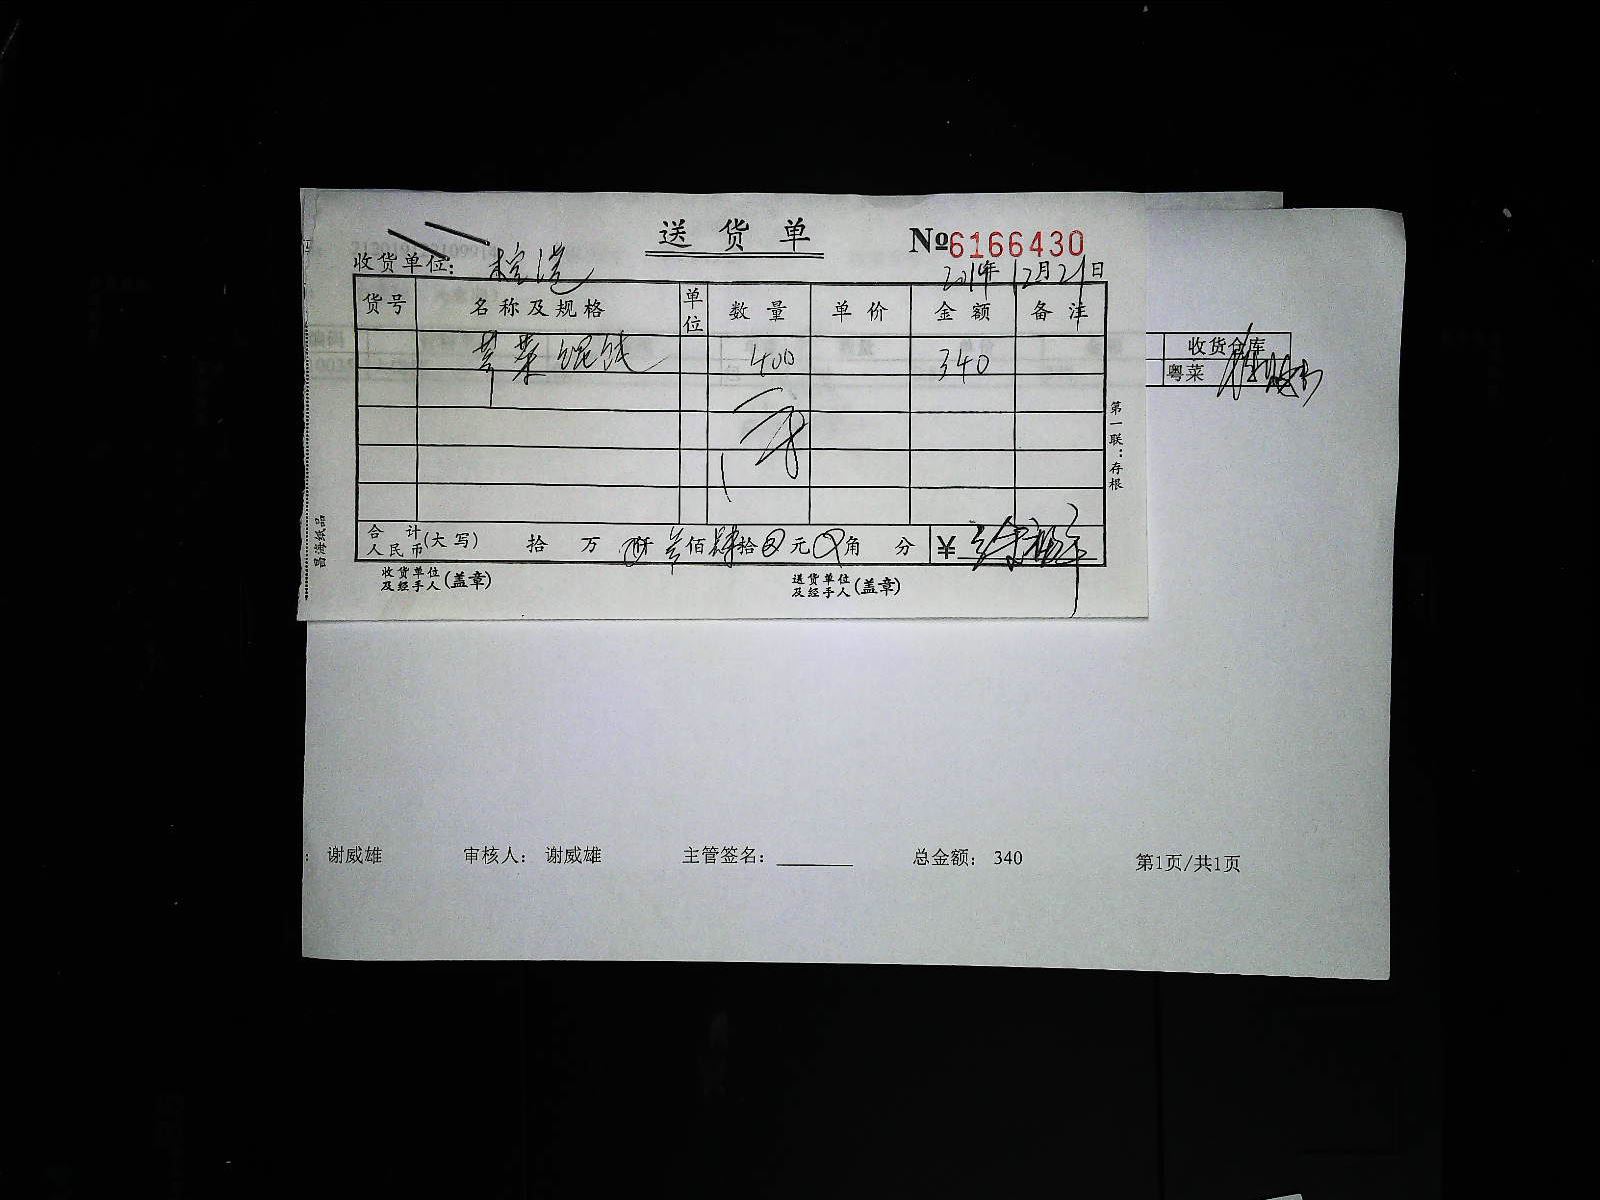 送货单
№6166430
收货单位：
2019年12月21日
货号 名称及规格 单位 数量 单价 金额 备注
荠菜馄饨 400 340
第一联：存根
合计人民币(大写) 拾 万 仟 叁佰肆拾 元 角 分 ¥
收货单位及经手人(盖章) 送货单位及经手人(盖章)
昌海纸品
收货仓库
粤菜
：谢威雄 审核人：谢威雄 主管签名： 总金额：340 第1页/共1页